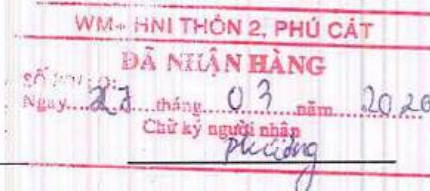 WM+ HNI THÔN 2, PHÚ CÁT
ĐÃ NHẬN HÀNG
Ngày 27 tháng 03 năm 2026
Chữ ký người nhận